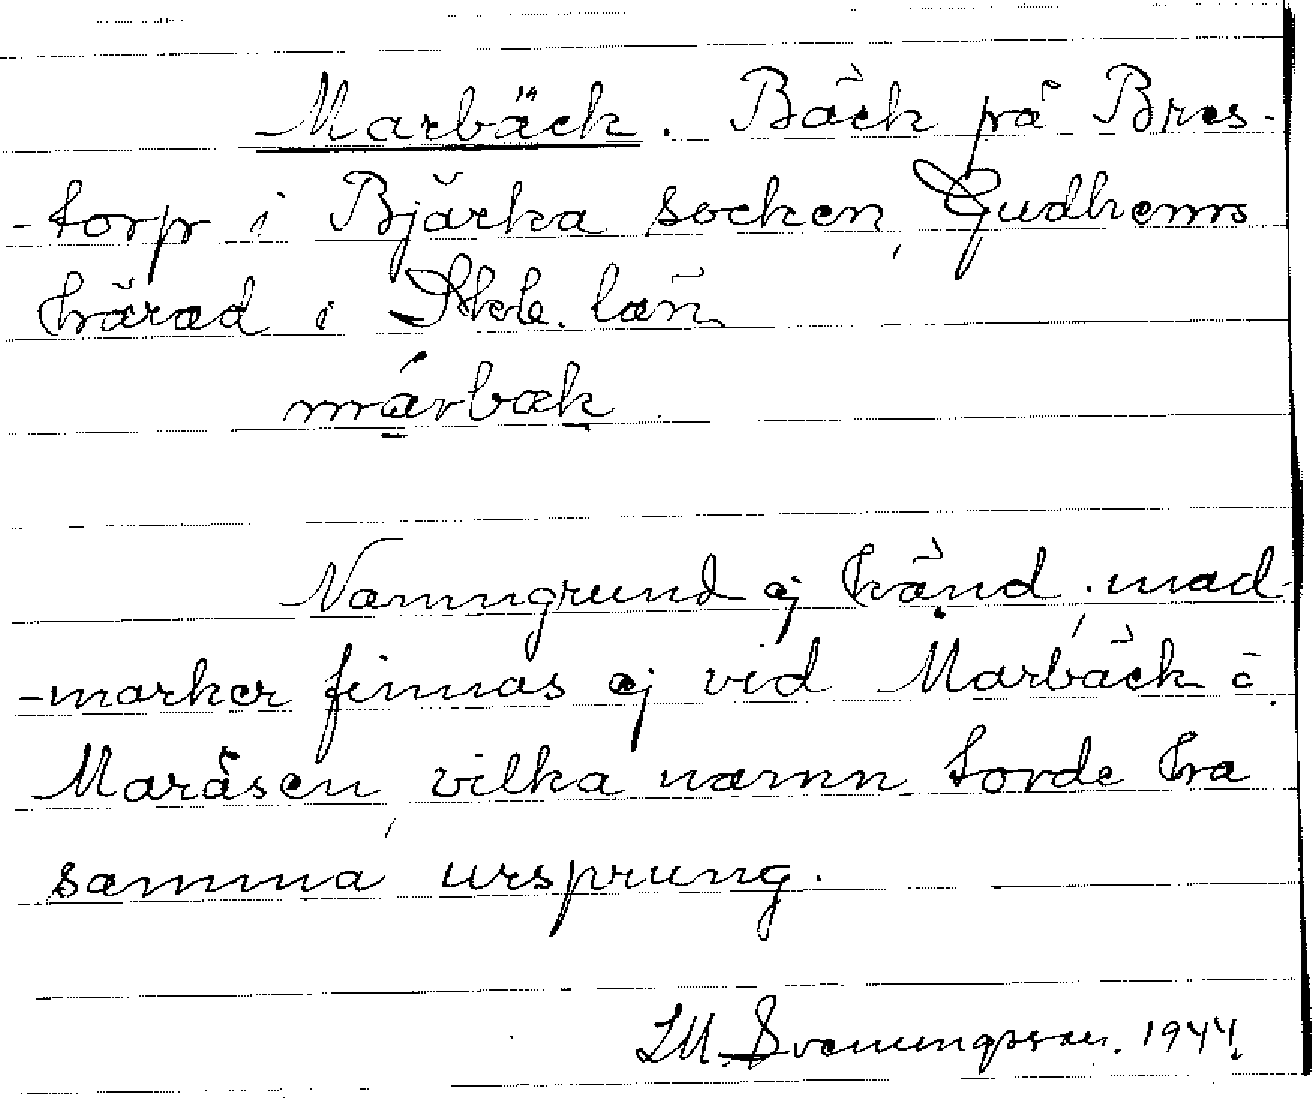 Marbäck. Bäck på Bres-
-torp i Bjärka socken, Gudhems
härad i Skb. län.
márbæk
Namngrund ej känd; mad-
-marker finnas ej vid Marbäck o.
Maråsen, vilka namn torde ha
samma ursprung.
LM. Svenungsson. 1944.